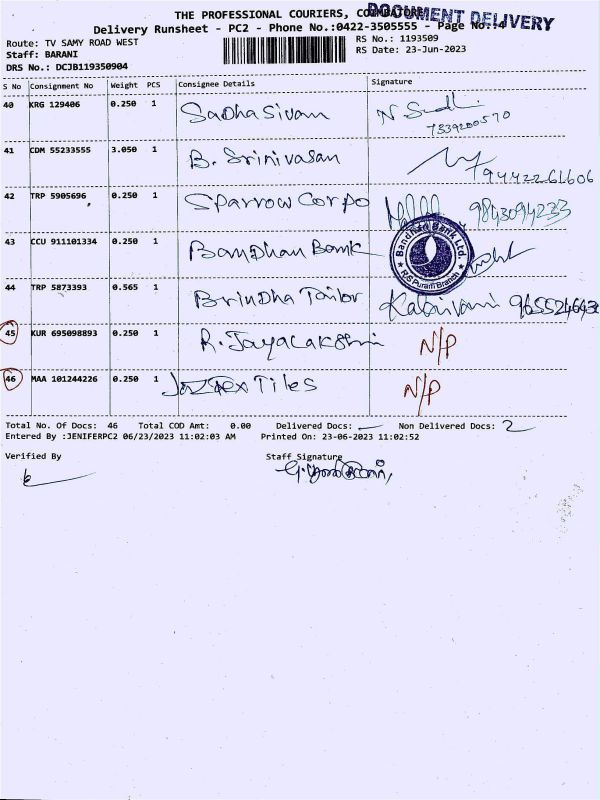 THE PROFESSIONAL COURIERS, COIMBATORE
DOCUMENT DELIVERY
Delivery Runsheet - PC2 - Phone No.:0422-3505555 - Page No.:4
Route: TV SAMY ROAD WEST
RS No.: 1193509
Staff: BARANI
RS Date: 23-Jun-2023
DRS No.: DCJB119350904
S No Consignment No Weight PCS Consignee Details Signature
40 KRG 129406 0.250 1 Sadhasivam
7339200570
41 CDM 55233555 3.050 1 B. Srinivasan
9442261606
42 TRP 5905696 0.250 1 Sparrow Corpo 9843094233
43 CCU 911101334 0.250 1 Bandhan Bank
Bandhan Bank Ltd.
RS Puram Branch
44 TRP 5873393 0.565 1 Brindha Tailor Kalaivani
45 KUR 695098893 0.250 1 R. Jayalakshmi N/P
46 MAA 101244226 0.250 1 Tiles N/P
Total No. Of Docs: 46 Total COD Amt: 0.00 Delivered Docs: Non Delivered Docs: 2
Entered By :JENIFERPC2 06/23/2023 11:02:03 AM Printed On: 23-06-2023 11:02:52
Verified By Staff Signature